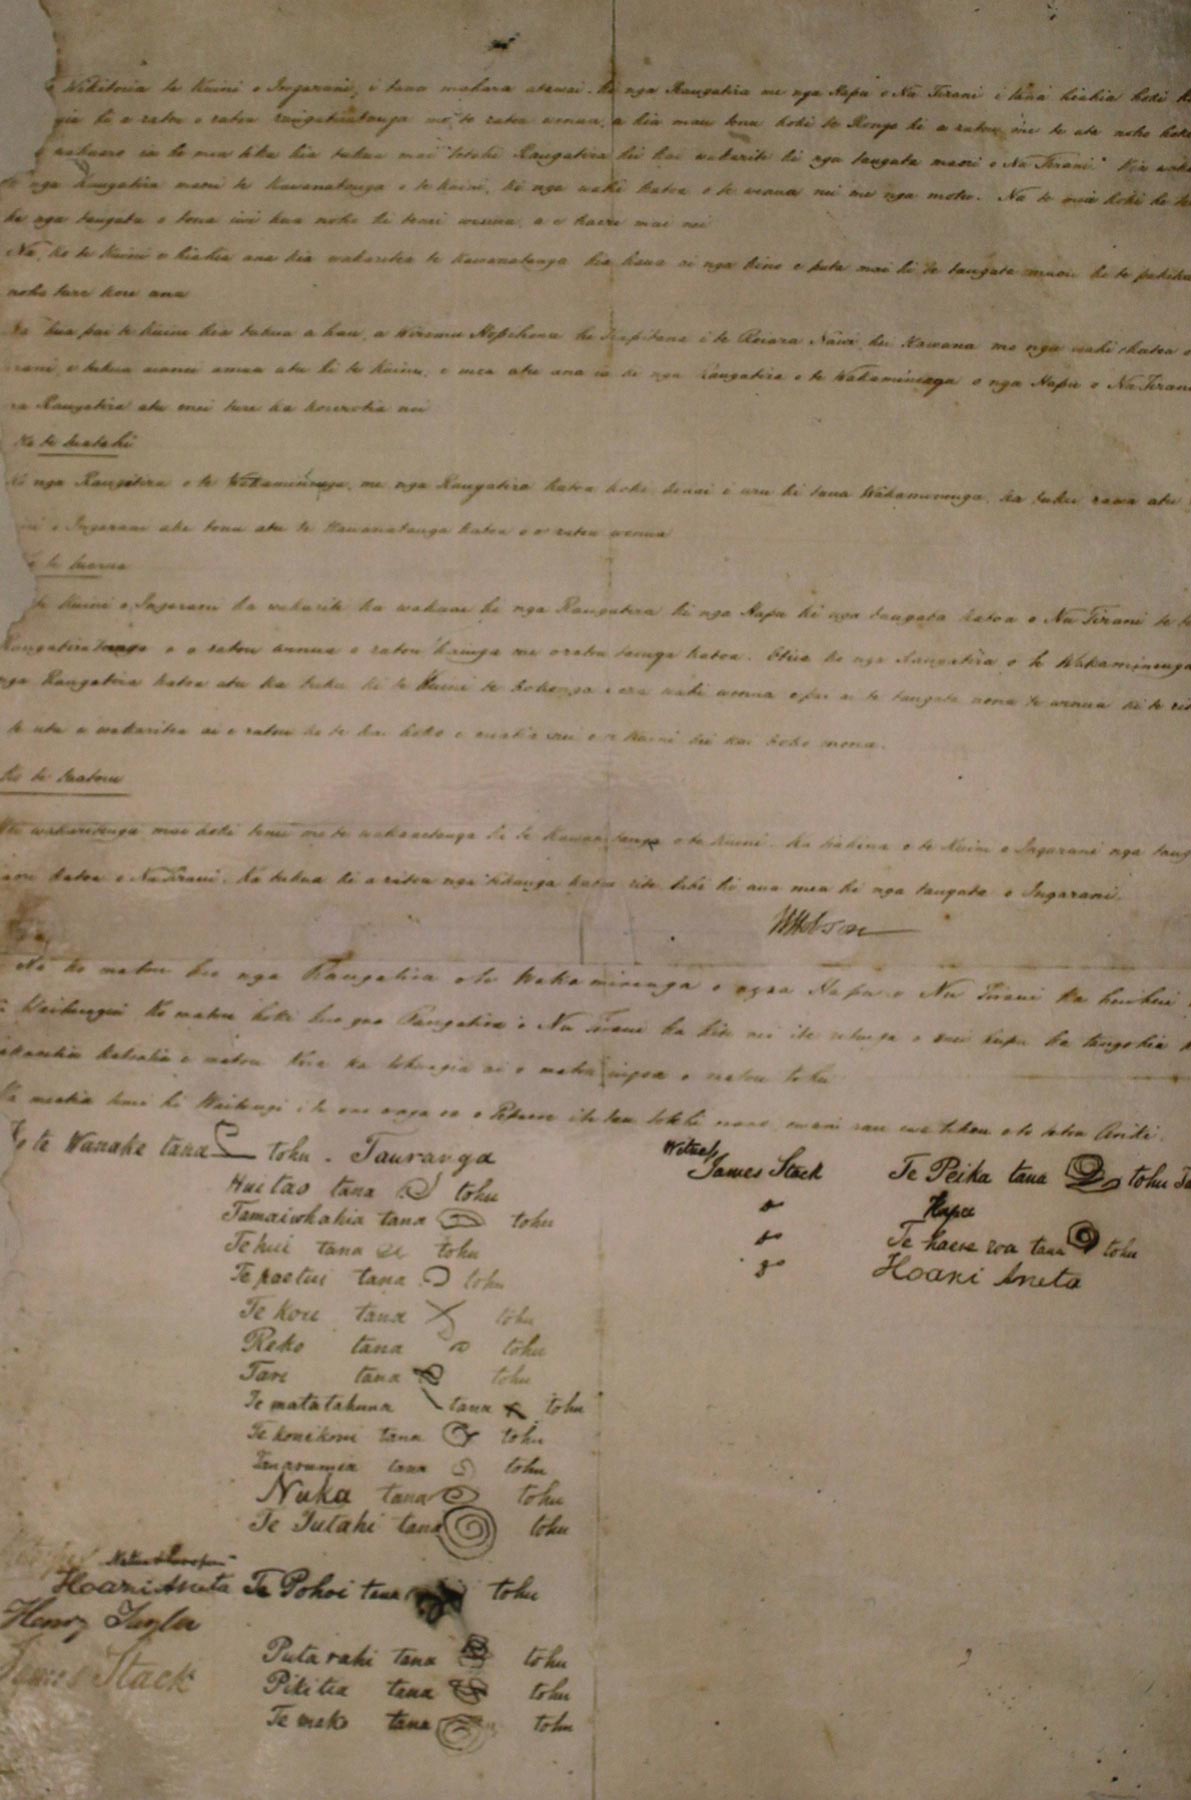 Wikitoria te Kuini o Ingarani, i tana mahara atawai ki nga Rangatira me nga Hapu o Nu Tirani i tana hiahia hoki
kia a ratou o ratou rangatiratanga me to ratou wenua, a kia mau tonu hoki te Rongo ki a ratou me te ata noho hoki
wakaaro ia he mea tika kia tukua mai tetahi Rangatira hei kai wakarite ki nga tangata maori o Nu Tirani. Kia
nga Rangatira maori te Kawanatanga o te Kuini, ki nga wahi katoa o te wenua nei me nga motu. Na te mea hoki he
ke nga tangata o tona iwi kua noho ki tenei wenua, a e haere mai nei
Na, ko te Kuini e hiahia ana kia wakaritea te Kawanatanga kia kaua ai nga kino e puta mai ki te tangata maori ki te pakeha
noho ture kore ana
Na kua pai te Kuini kia tukua a hau, a Wiremu Hopihona he Kapitana i te Roiara Nawi hei Kawana mo nga wahi katoa o
e tukua aianei amua atu ki te Kuini, e mea atu ana ia ki nga Rangatira o te Wakaminenga o nga Hapu o Nu Tirani
ra Rangatira atu enei ture ka korerotia nei
Ko te tuatahi
Ko nga Rangatira o te Wakaminenga, me nga Rangatira katoa hoki, kihai i uru ki taua Wakaminenga, ka tuku rawa atu
o Ingarani ake tonu atu te Kawanatanga katoa o o ratou wenua
Ko te tuarua
te Kuini o Ingarani ka wakarite ka wakaae ki nga Rangatira ki nga Hapu ki nga tangata katoa o Nu Tirani te
Rangatiratanga o o ratou wenua o ratou kainga me o ratou taonga katoa. Otiia ko nga Rangatira o te Wakaminenga
nga Rangatira katoa atu ka tuku ki te Kuini te hokonga o era wahi wenua e pai ai te tangata nona te wenua ki te
te utu e wakaritea ai e ratou ko te kai hoko e meatia nei e te Kuini hei kai hoko mona.
Ko te tuatoru
wakaritenga mai hoki tenei mo te wakaaetanga ki te Kawanatanga o te Kuini. Ka tiakina e te Kuini o Ingarani nga
katoa o Nu Tirani. Ka tukua ki a ratou nga tikanga katoa rite tahi ki ana mea ki nga tangata o Ingarani.
W Hobson
Na ko matou ko nga Rangatira o te Wakaminenga o nga Hapu o Nu Tirani ka huihui
Waitangi Ko matou hoki ko nga Rangatira o Nu Tirani ka kite nei i te ritenga o enei kupu ka tangohia
katoatia e matou Koia ka tohungia ai o matou ingoa o matou tohu
Ka meatia tenei ki Waitangi i te ono o nga ra o Pepuere i te tau kotahi mano, e waru rau e wa tekau o to tatou Ariki.
te Wanake tana tohu. Tauranga
Witness
James Stack Te Peika tana tohu
Huitao tana tohu
Hapu
Tamaiwhahia tana tohu
do Te haere roa tana tohu
Te hui tana tohu
do Hoani Aneta
Te paetui tana tohu
Te Kou tana tohu
Reko tana tohu
Tari tana tohu
Te matatahuna tana tohu
Te konikoni tana tohu
tana tohu
Nuka tana tohu
Te Tutahi tana tohu
Hoani Aneta Te Pohoi tana tohu
Henry Tayler
Putarahi tana tohu
James Stack
Pikitia tana tohu
Te meko tana tohu